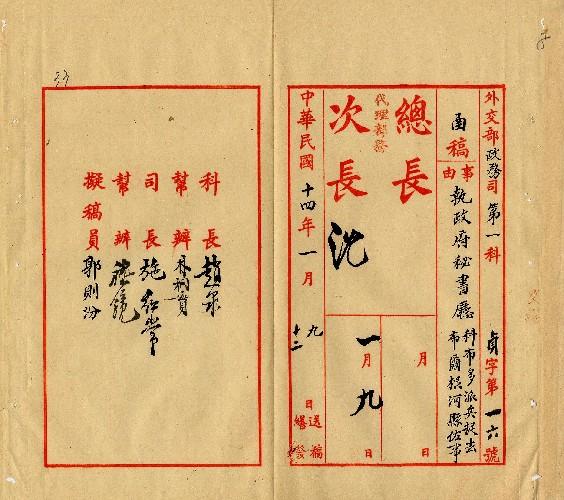 外交部政務司第一科
貞字第一六號
函稿
事由
執政府秘書廳
科布多派兵越去
布爾根河縣佐事
總長
代理部務
次長沈
月 日
一月九日
中華民國十四年一月
九
十二
日
送稿
繕發
科長趙泉
幫辦
司長施紹常
幫辦
擬稿員郭則汾